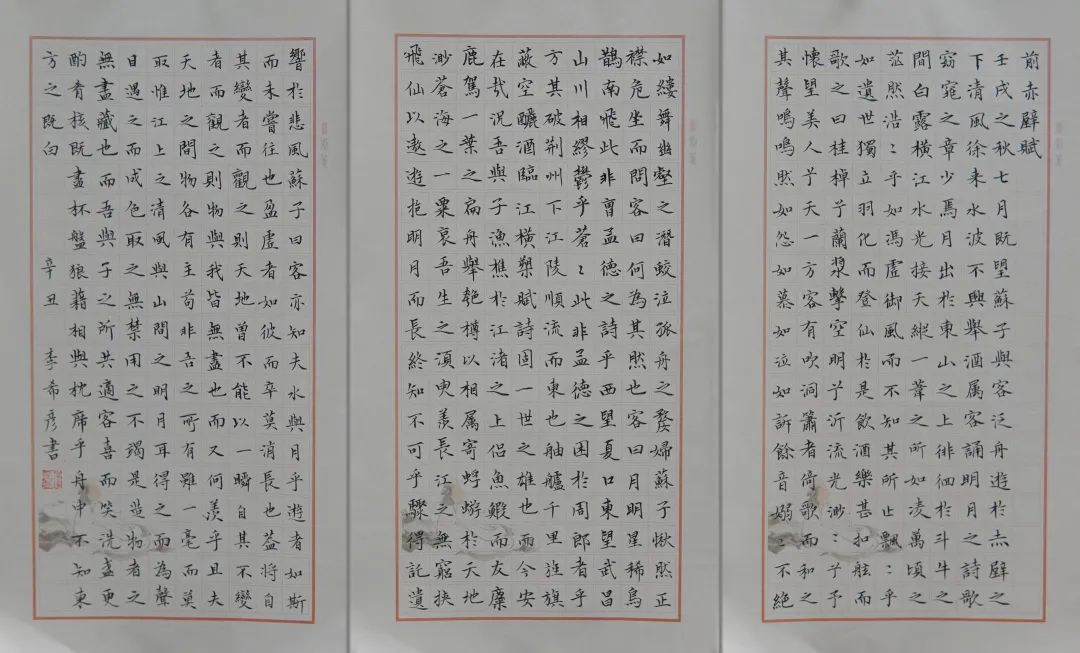 前赤壁賦
壬戌之秋七月既望蘇子與客泛舟遊於赤壁之
下清風徐来水波不興舉酒属客誦明月之詩歌
窈窕之章少焉月出於東山之上徘徊於斗牛之
間白露横江水光接天縱一葦之所如凌萬頃之
茫然浩〻乎如馮虚御風而不知其所止飄〻乎
如遺世獨立羽化而登仙於是飲酒樂甚扣舷而
歌之曰桂棹兮蘭漿擊空明兮泝流光渺〻兮予
懷望美人兮天一方客有吹洞簫者倚歌而和之
其聲嗚嗚然如怨如慕如泣如訴餘音嫋〻不絶
如縷舞幽壑之潛蛟泣孤舟之嫠婦蘇子愀然正
襟危坐而問客曰何為其然也客曰月明星稀烏
鵲南飛此非曹孟德之詩乎西望夏口東望武昌
山川相繆鬱乎蒼〻此非孟德之困於周郎者乎
方其破荆州下江陵順流而東也舳艫千里旌旗
蔽空釃酒臨江横槊賦詩固一世之雄也而今安
在哉況吾與子漁樵於江渚之上侣魚鰕而友麋
鹿駕一葉之扁舟舉匏樽以相属寄蜉蝣於天地
渺蒼海之一粟哀吾生之須臾羨長江之無窮挟
飛仙以遨遊抱明月而長終知不可乎驟得託遺
響於悲風蘇子曰客亦知夫水與月乎遊者如斯
而未嘗往也盈虚者如彼而卒莫消長也葢将自
其變者而觀之則天地曾不能以一瞬自其不變
者而觀之則物與我皆無盡也而又何羨乎且夫
天地之間物各有主苟非吾之所有雖一毫而莫
取惟江上之清風與山間之明月耳得之而為聲
目遇之而成色取之無禁用之不竭是造物者之
無盡藏也而吾與子之所共適客喜而笑洗盞更
酌肴核既盡杯盤狼藉相與枕席乎舟中不知東
方之既白 辛丑 李希彦書